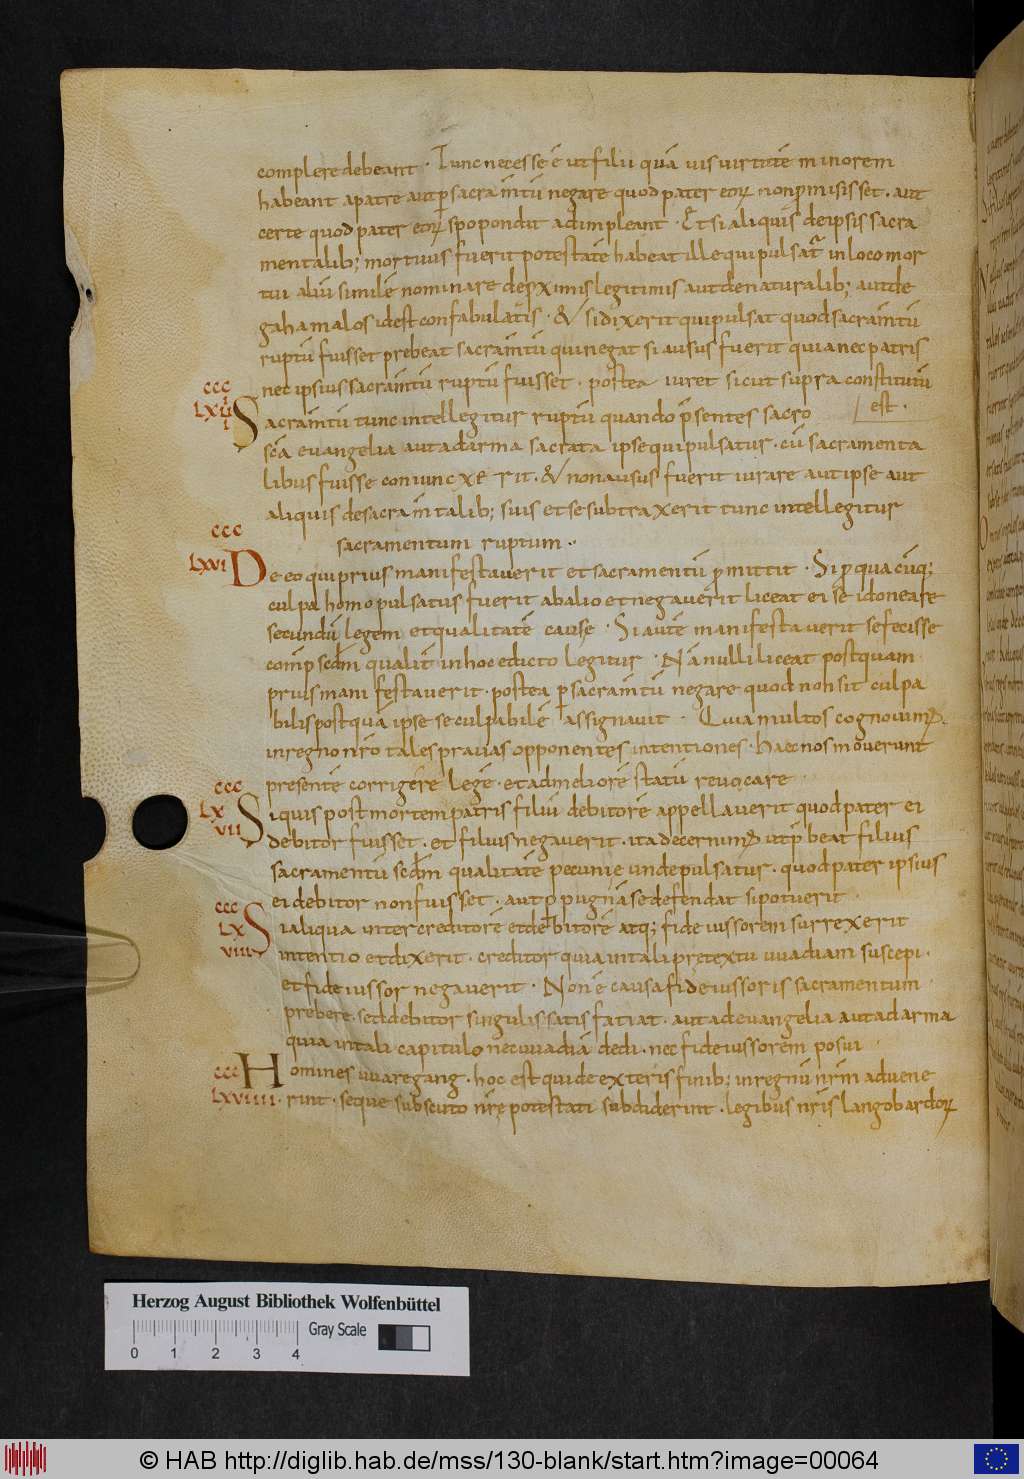 complere debeant · Tunc necesse ē ut filii quā uis uirtutē minorem
habeant apatre aut p sacraīntū negare quod pater eoꝝ non pmisisset · aut
certe quod pater eoꝝ spopondit adimpleant · Et si aliquis de ipsis sacra
mentalib; mortuus fuerit potestatē habeat ille qui pulsat in loco mor
tui aliū similē nominare de pximis legitimis aut de naturalib; aut de
gahamalos id est confabulatis · & si dixerit qui pulsat quod sacraīntū
ruptū fuisset prebeat sacraīntū qui negat si ausus fuerit quia nec patris
nec ipsius sacraīntū ruptū fuisset · postea iuret sicut supra constitutū
est ·
ccc
lxu
Sacraīntū tunc intellegitur ruptū quando p̄sentes sacro
sc̄a euangelia aut ad arma sacrata ipse qui pulsatur · cū sacramenta
libus fuisse coniuncxerit · & non ausus fuerit iurare aut ipse aut
aliquis de sacraīntalib; suis et se subtraxerit tunc intellegitur
sacramentum ruptum ·
ccc
lxui
De eo qui prius manifestauerit et sacramentū pmittit · Si p qua cūq;
culpa homo pulsatus fuerit ab alio et negauerit liceat ei se idoneare
secundū legem et qualitatē cause · Si autē manifestauerit se fecisse
comp scdm qualit in hoc edicto legitur · Nā nulli liceat postquam
prius manifestauerit · postea p sacraīntū negare quod non sit culpa
bilis postquā ipse se culpabilē assignauit · Quia multos cognouim;
in regno nr̄o tales prauas opponentes intentiones · haec nos mouerunt
presentē corrigere legē · et ad meliorē statū reuocare ·
ccc
lx
uii
Si quis post mortem patris filiū debitorē appellauerit quod pater ei
debitor fuisset · et filius negauerit · ita decernim; ut p̄beat filius
sacramentū scdm qualitatē pecunie unde pulsatur · quod pater ipsius
ei debitor non fuisset · aut p pugnā se defendat si potuerit ·
ccc
lx
uiii
Si aliqua inter creditorē et debitorē atq; fideiussorem surrexerit
intentio et dixerit · creditor quia in tali pretextu uuadiam suscepi ·
et fideiussor negauerit · Non ē causa fideiussoris sacramentum
prebere · sed debitor singulis satisfatiat · aut ad euangelia aut ad arma
quia in tali capitulo nec uuadiā dedi · nec fideiussorem posui ·
ccc
lxuiiii
Homines uuaregang · hoc est qui de exteris finib; in regnū nr̄m aduene
rint · seque sub scuto nr̄e potestati subdiderint · legibus nr̄is langobardoꝝ
Herzog August Bibliothek Wolfenbüttel
Gray Scale
0 1 2 3 4
© HAB http://diglib.hab.de/mss/130-blank/start.htm?image=00064